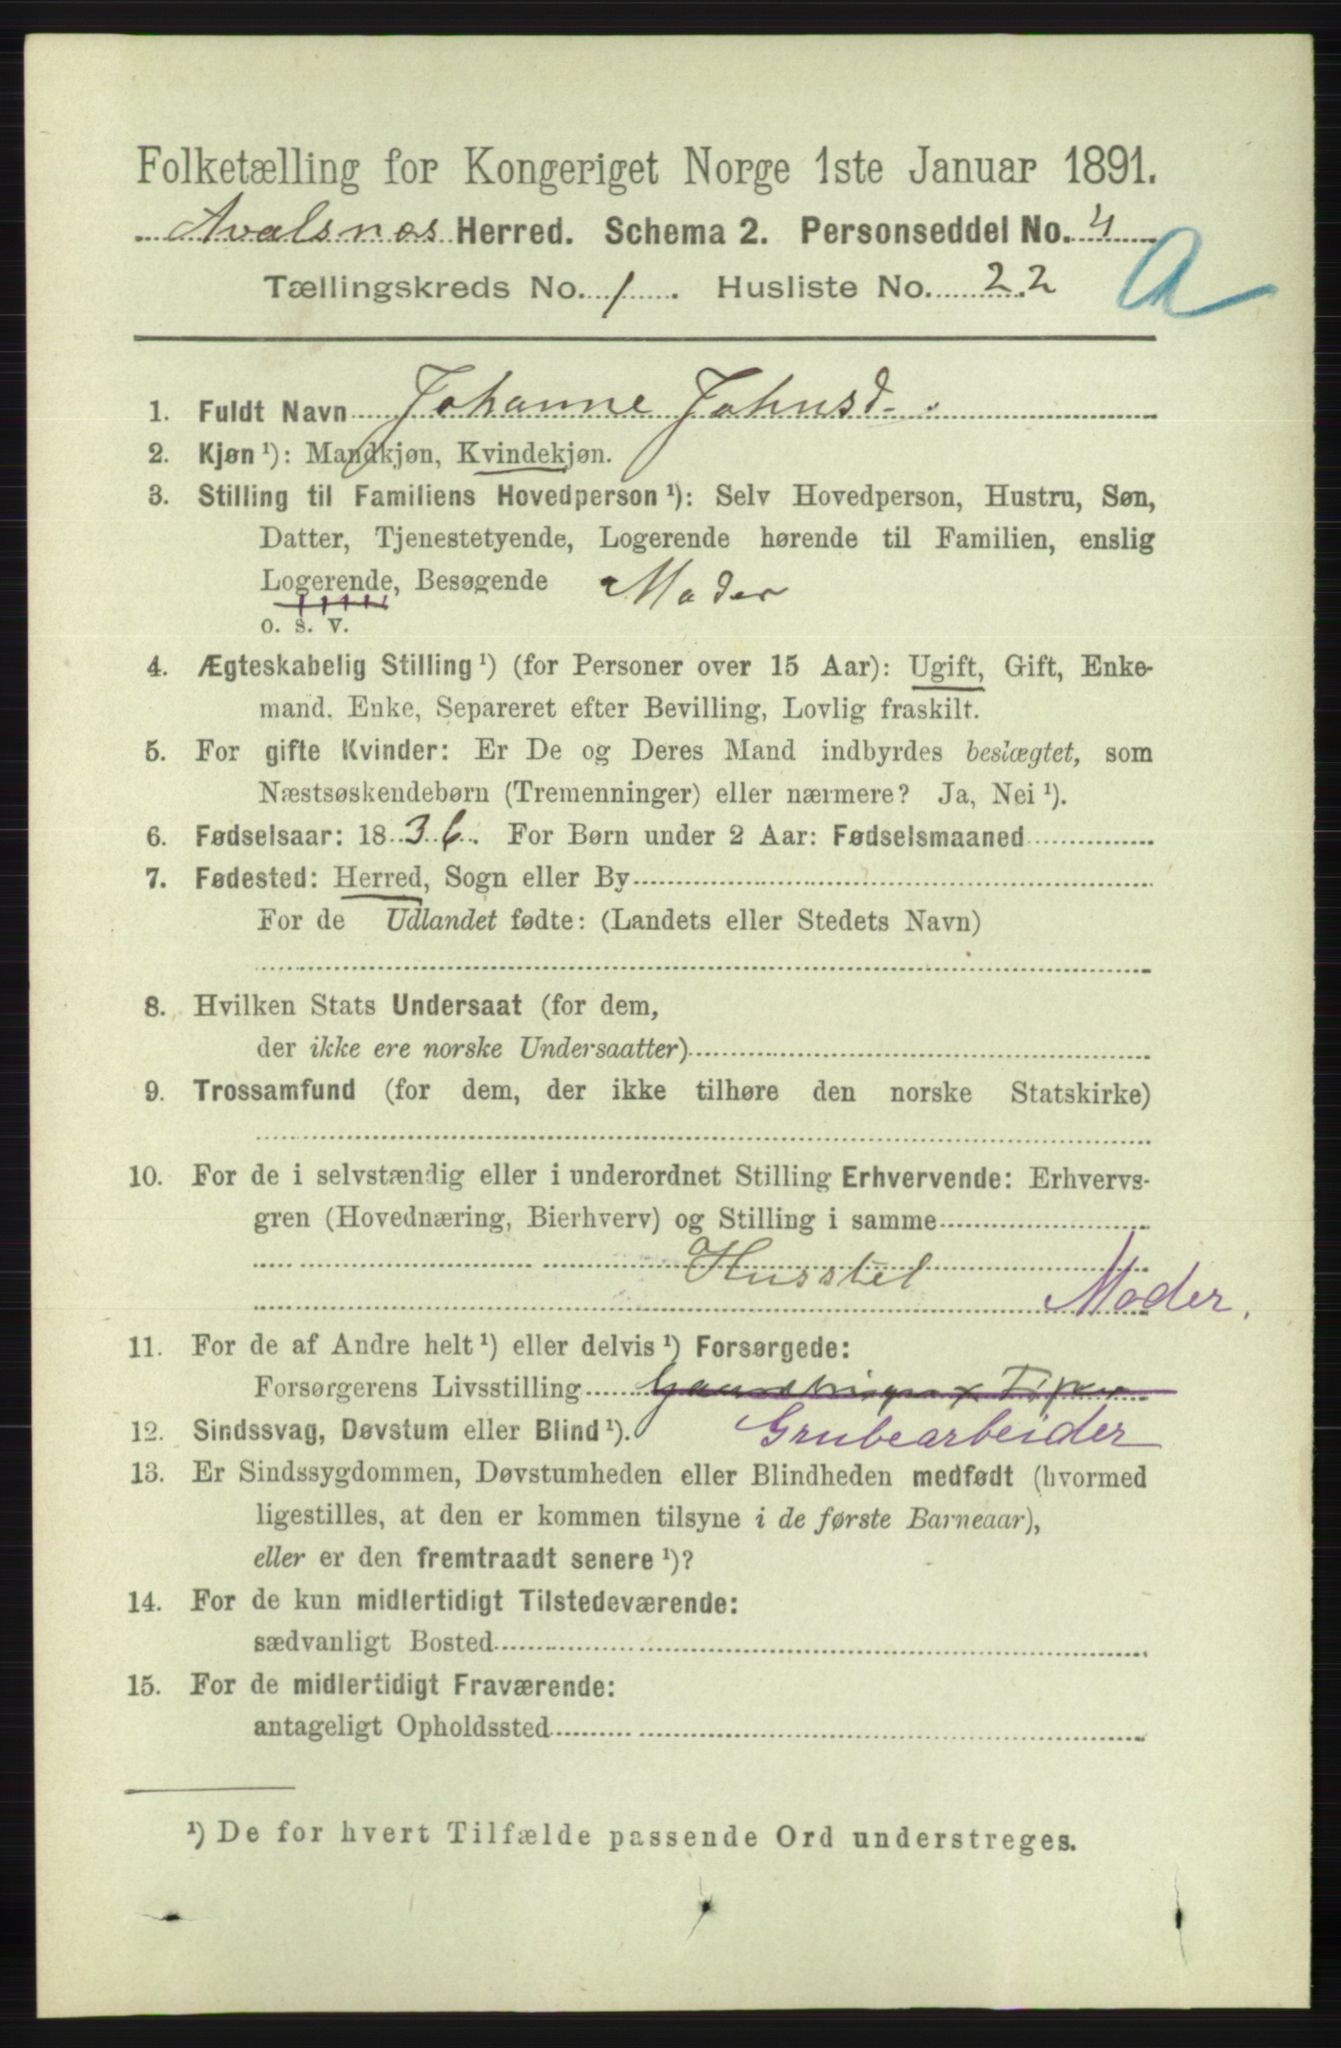 Folketælling for Kongeriget Norge 1ste Januar 1891.
Avalsnes Herred. Schema 2. Personseddel No. 4
A
Tællingskreds No. 1. Husliste No. 22
1. Fuldt Navn Johanne Johnsd.
2. Kjøn ¹): Mandkjøn, Kvindekjøn.
3. Stilling til Familiens Hovedperson ¹): Selv Hovedperson, Hustru, Søn,
Datter, Tjenestetyende, Logerende hørende til Familien, enslig
Logerende, Besøgende Moder
o. s. v.
4. Ægteskabelig Stilling ¹) (for Personer over 15 Aar): Ugift, Gift, Enke-
mand, Enke, Separeret efter Bevilling, Lovlig fraskilt.
5. For gifte Kvinder: Er De og Deres Mand indbyrdes beslægtet, som
Næstsøskendebørn (Tremenninger) eller nærmere? Ja, Nei ¹).
6. Fødselsaar: 1836. For Børn under 2 Aar: Fødselsmaaned
7. Fødested: Herred, Sogn eller By
For de Udlandet fødte: (Landets eller Stedets Navn)
8. Hvilken Stats Undersaat (for dem,
der ikke ere norske Undersaatter)
9. Trossamfund (for dem, der ikke tilhøre den norske Statskirke)
10. For de i selvstændig eller i underordnet Stilling Erhvervende: Erhvervs-
gren (Hovednæring, Bierhverv) og Stilling i samme
Husstel
Moder.
11. For de af Andre helt ¹) eller delvis ¹) Forsørgede:
Forsørgerens Livsstilling
12. Sindssvag, Døvstum eller Blind ¹). Grubearbeider
13. Er Sindssygdommen, Døvstumheden eller Blindheden medfødt (hvormed
ligestilles, at den er kommen tilsyne i de første Barneaar),
eller er den fremtraadt senere ¹)?
14. For de kun midlertidigt Tilstedeværende:
sædvanligt Bosted
15. For de midlertidigt Fraværende:
antageligt Opholdssted
¹) De for hvert Tilfælde passende Ord understreges.